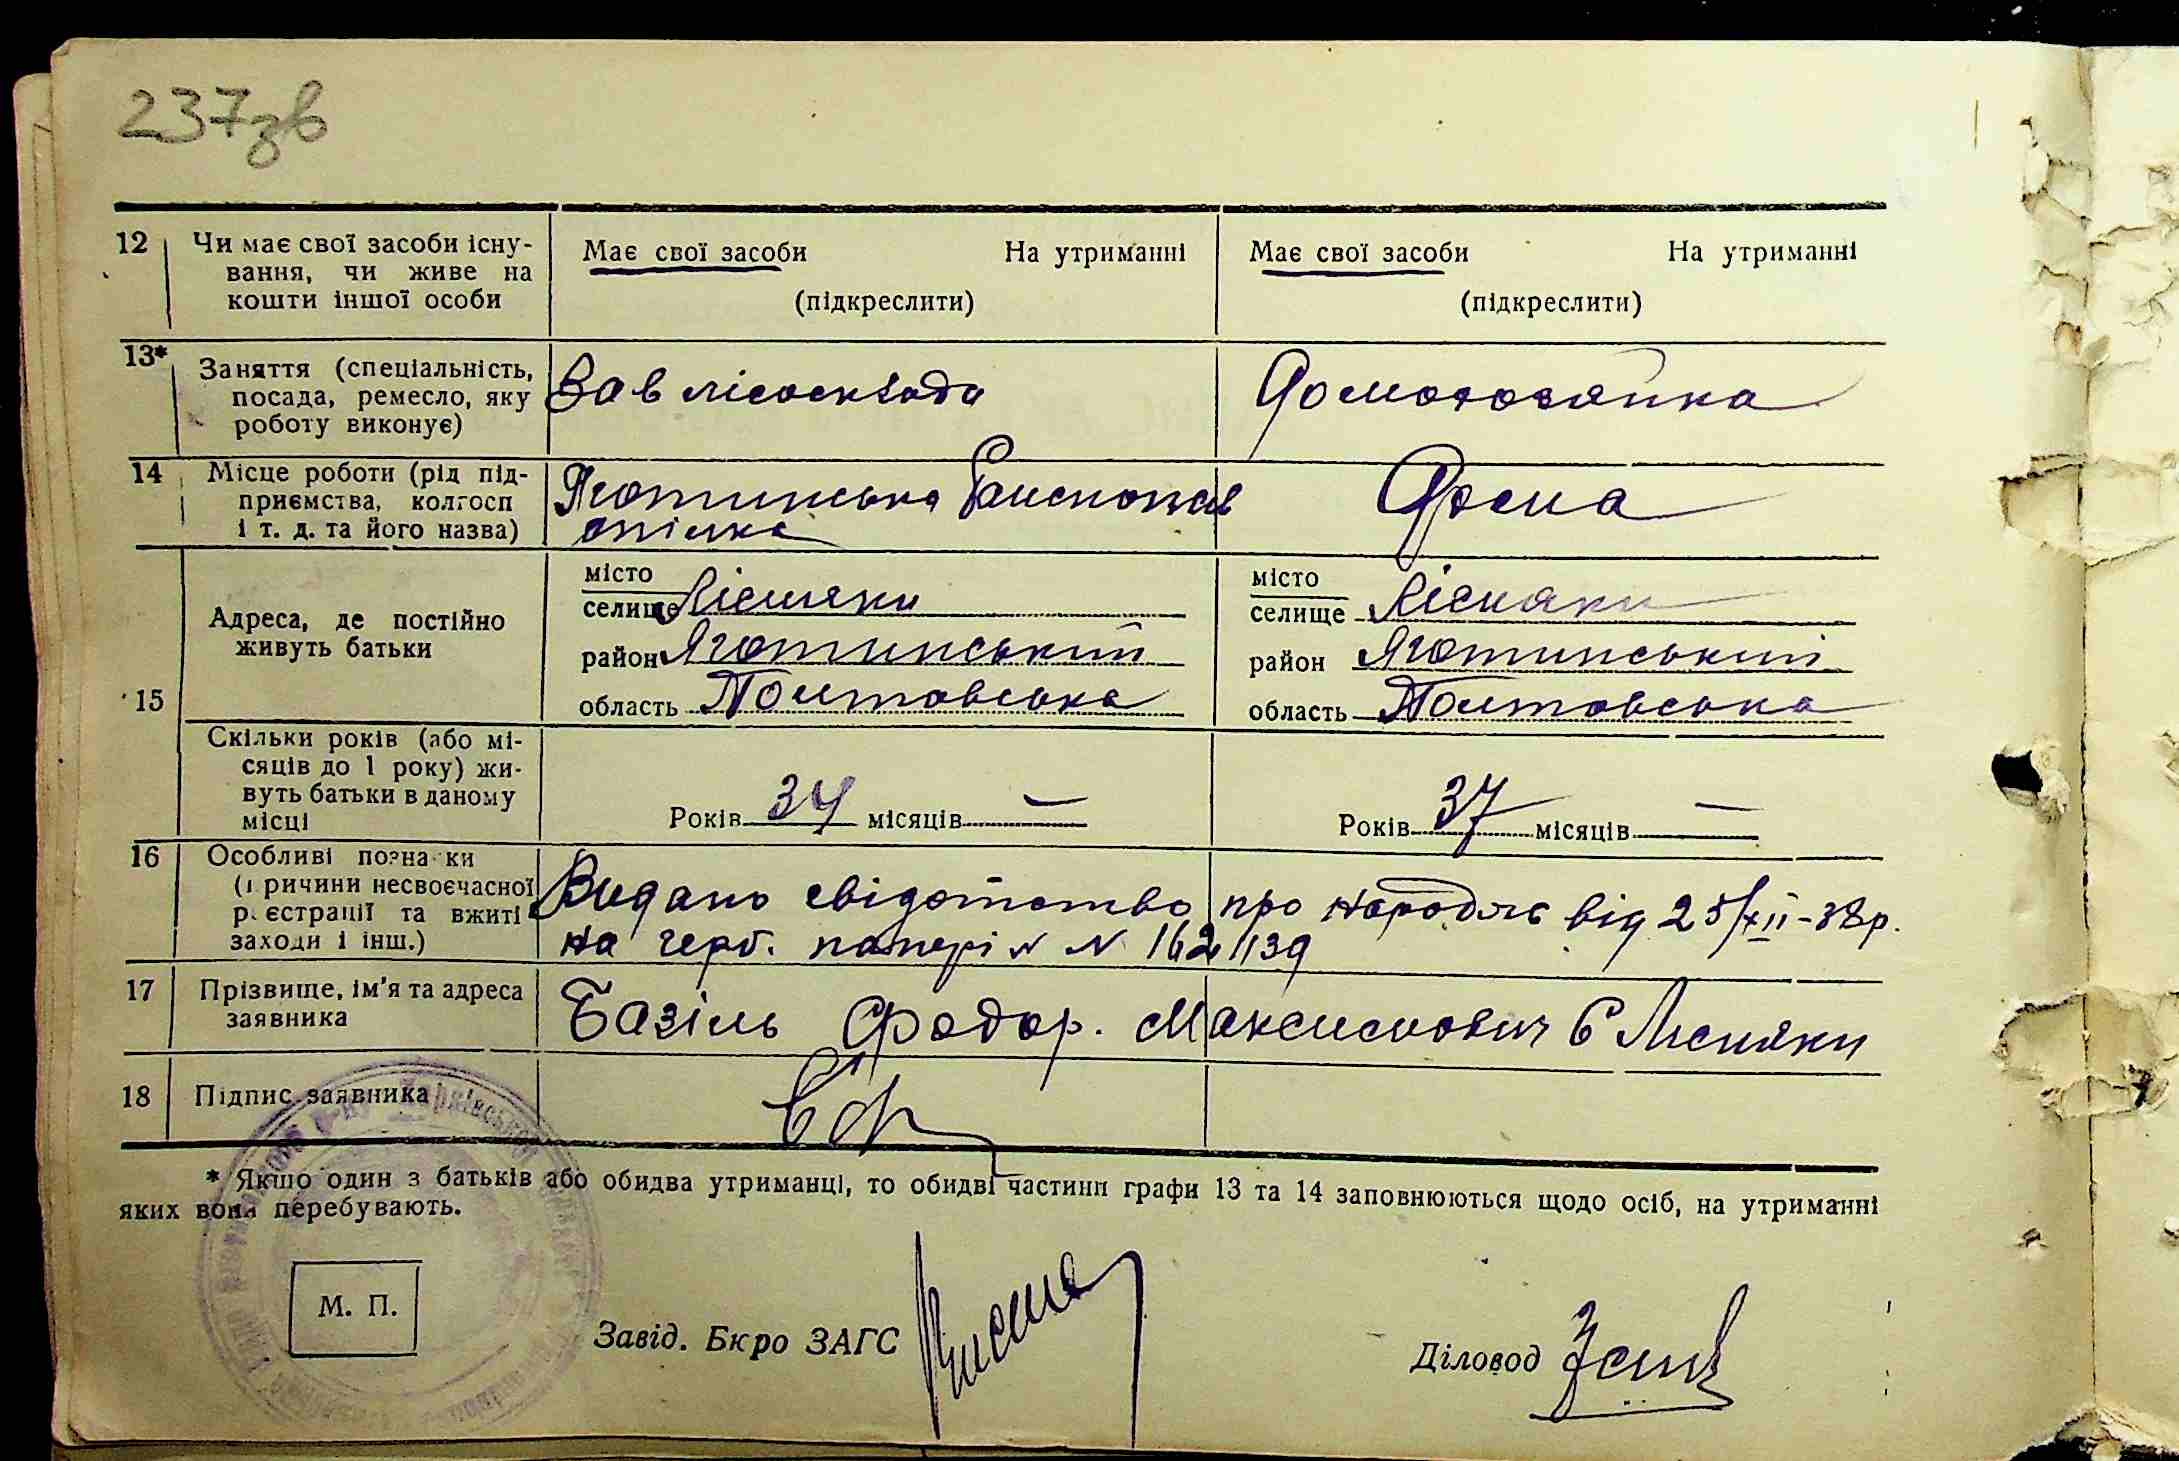 237зв
12 Чи має свої засоби існу- Має свої засоби На утриманні Має свої засоби На утриманні
вання, чи живе на
кошти іншої особи (підкреслити) (підкреслити)
13* Заняття (спеціальність,
посада, ремесло, яку Зав лісосклада Домохозяйка
роботу виконує)
14 Місце роботи (рід під-
приємства, колгосп Яготинська
і т. д. та його назва) спілка
місто місто
селище Лісняки селище Лісняки
Адреса, де постійно
живуть батьки район Яготинський район Яготинський
15 область Полтавська область Полтавська
Скільки років (або мі-
сяців до 1 року) жи-
вуть батьки в даному Років 34 місяців — Років 37 місяців —
місці
16 Особливі познаки
(причини несвоєчасної Видано свідотство про народж від 25/XII-38р.
реєстрації та вжиті
заходи і інш.) на герб. папері № 162139
17 Прізвище, ім'я та адреса Базіль Федор. Максимович С Лісняки
заявника
18 Підпис заявника
* Якшо один з батьків або обидва утриманці, то обидві частини графи 13 та 14 заповнюються щодо осіб, на утриманні
яких вони перебувають.
М. П.
Завід. Бюро ЗАГС
Діловод